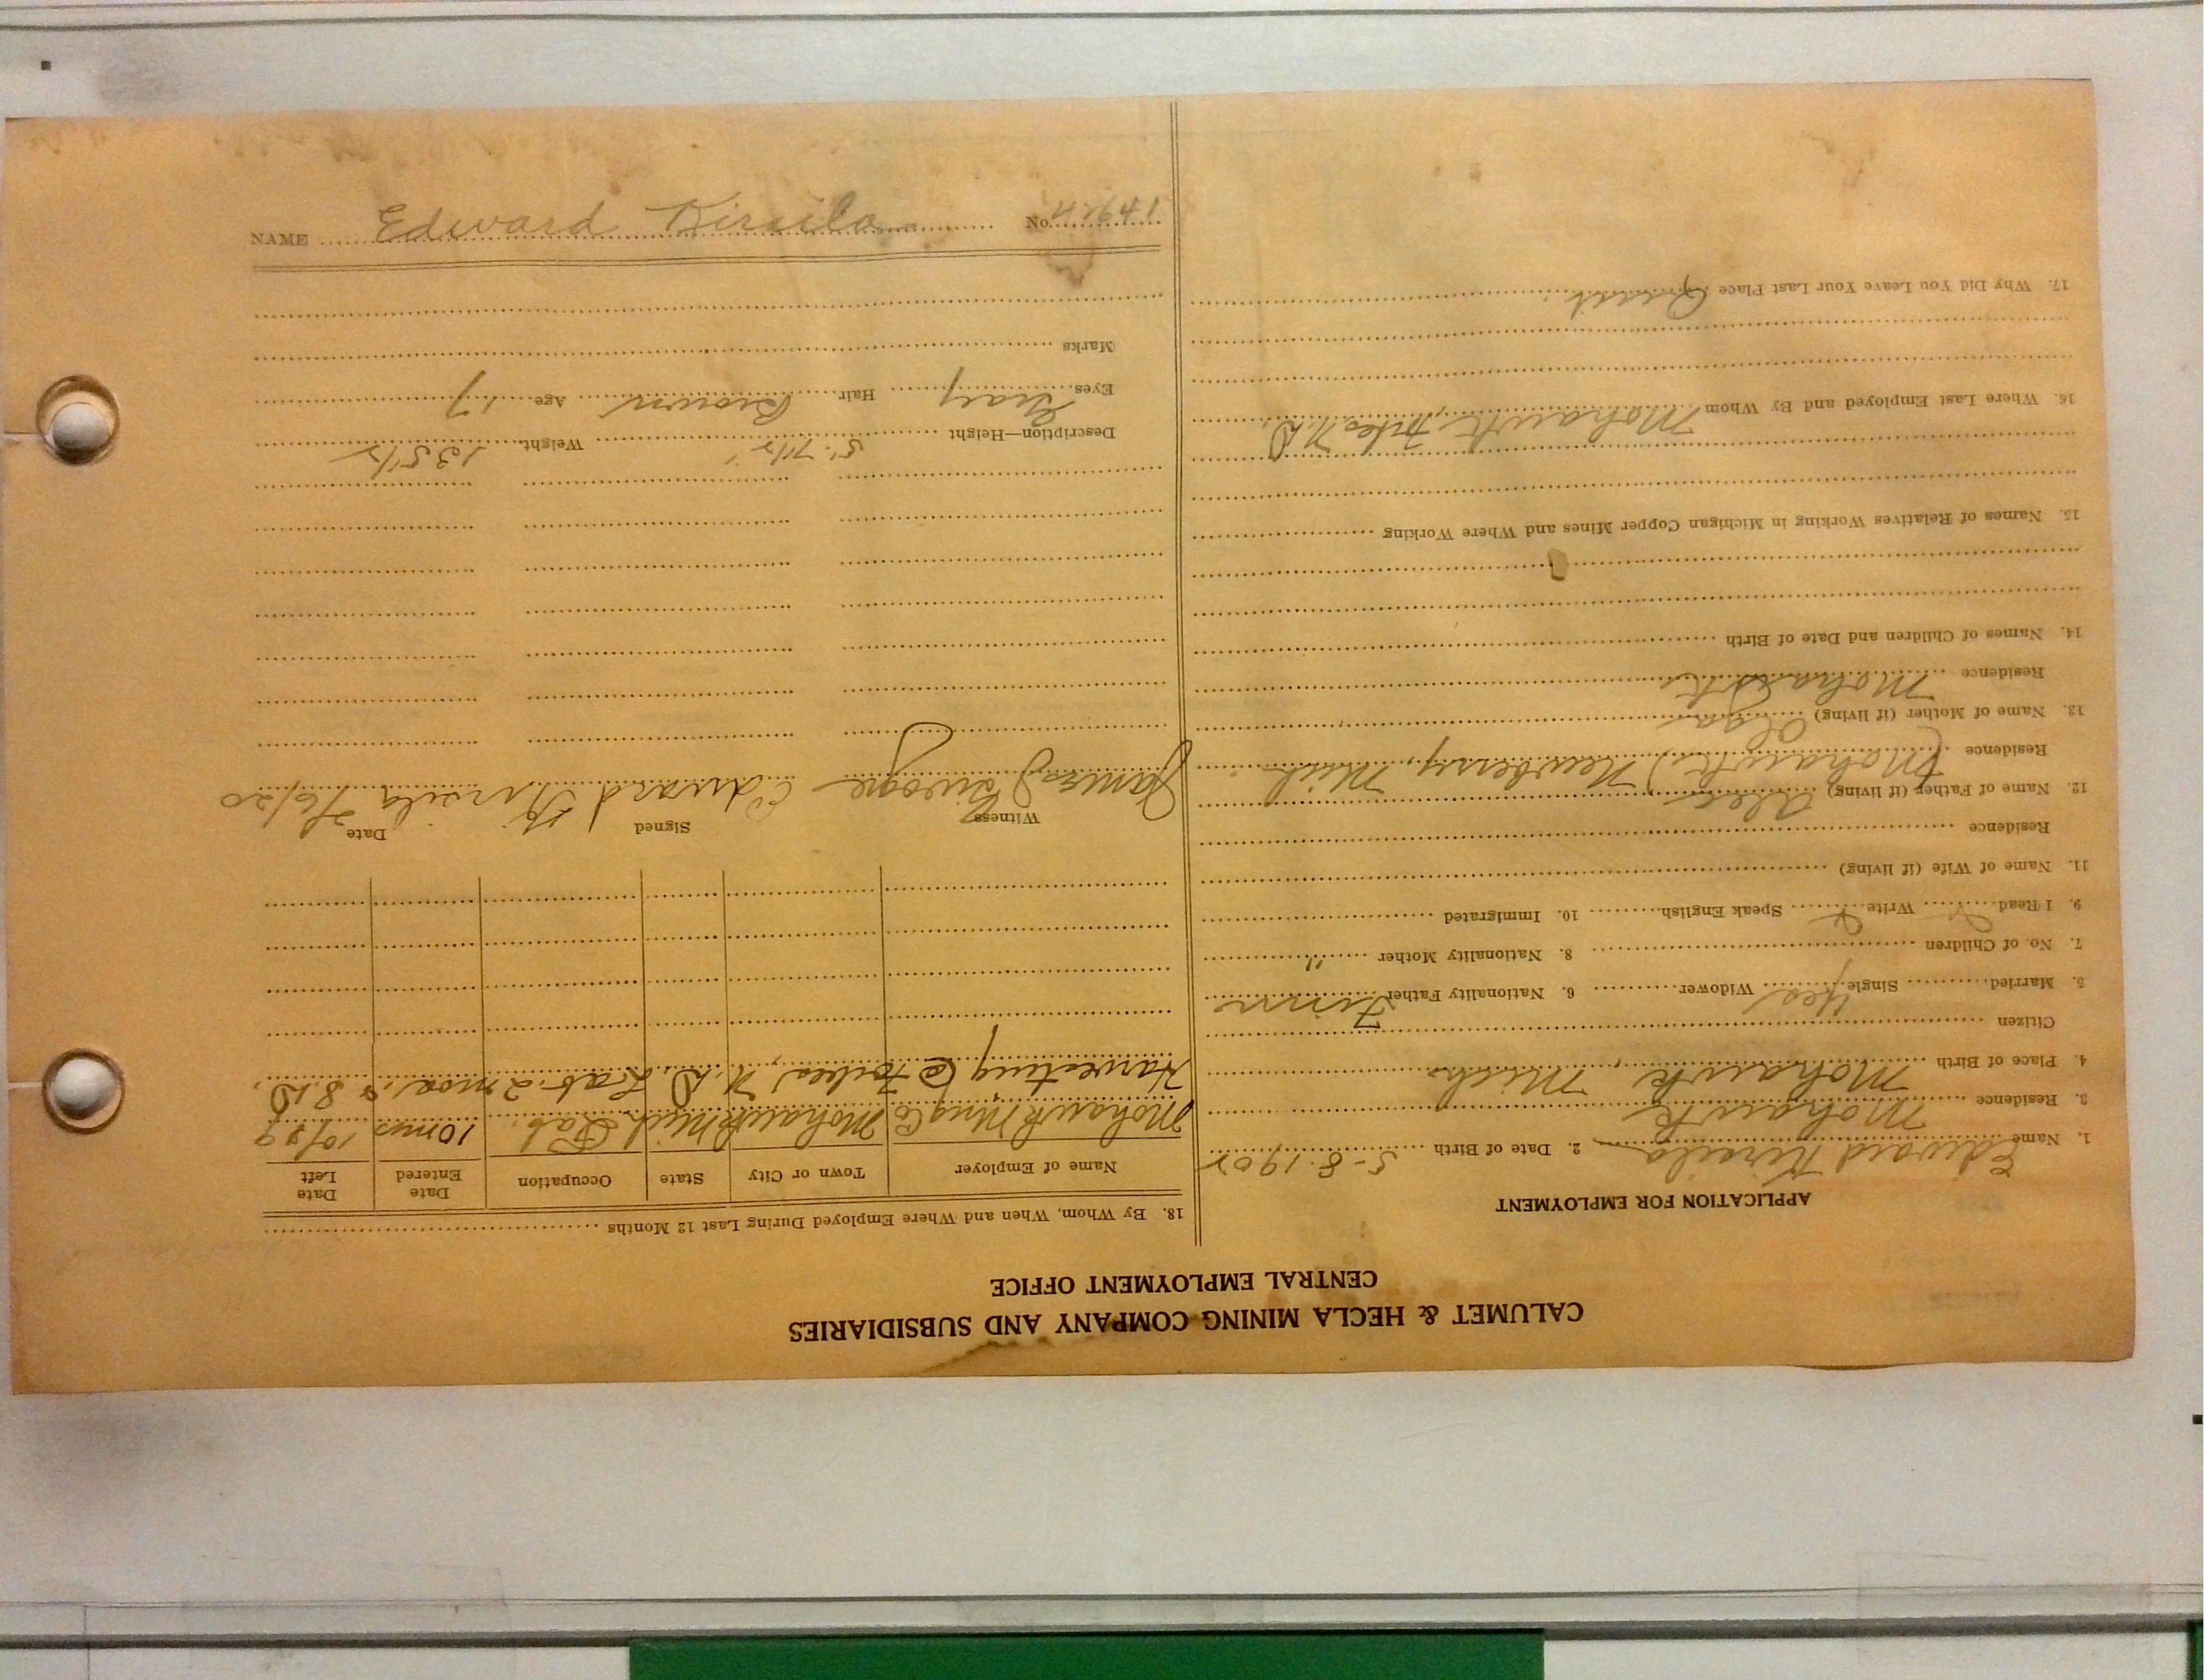 CALUMET & HECLA MINING COMPANY AND SUBSIDIARIES
CENTRAL EMPLOYMENT OFFICE
APPLICATION FOR EMPLOYMENT
1. Name Edward Kirsila 2. Date of Birth 5-8-1902
3. Residence Mohawk
4. Place of Birth Mohawk, Mich.
Citizen
5. Married Single Yes Widower 6. Nationality Father Finn
7. No. of Children 8. Nationality Mother "
9. I Read Write Speak English 10. Immigrated
11. Name of Wife (if living)
Residence
12. Name of Father (if living) Alex
Residence (Mohawk) Newberry, Mich.
13. Name of Mother (if living) Olga
Residence Mohawk
14. Names of Children and Date of Birth
15. Names of Relatives Working in Michigan Copper Mines and Where Working
16. Where Last Employed and By Whom Mohawk, Forbes, N.D.
17. Why Did You Leave Your Last Place Quit.
18. By Whom, When and Where Employed During Last 12 Months
Name of Employer Town or City State Occupation Date Entered Date Left
Mohawk Mng Co Mohawk Mich Lab. 10 mos
Harvesting @ Forbes, N.D. Lab. 2 mos.
Witness Signed Date
James Edward Kirsila /6/20
Description—Height 5' 7 1/2" Weight 135 1/2
Eyes Gray Hair Brown Age 17
Marks
NAME Edward Kirsila No. 47641